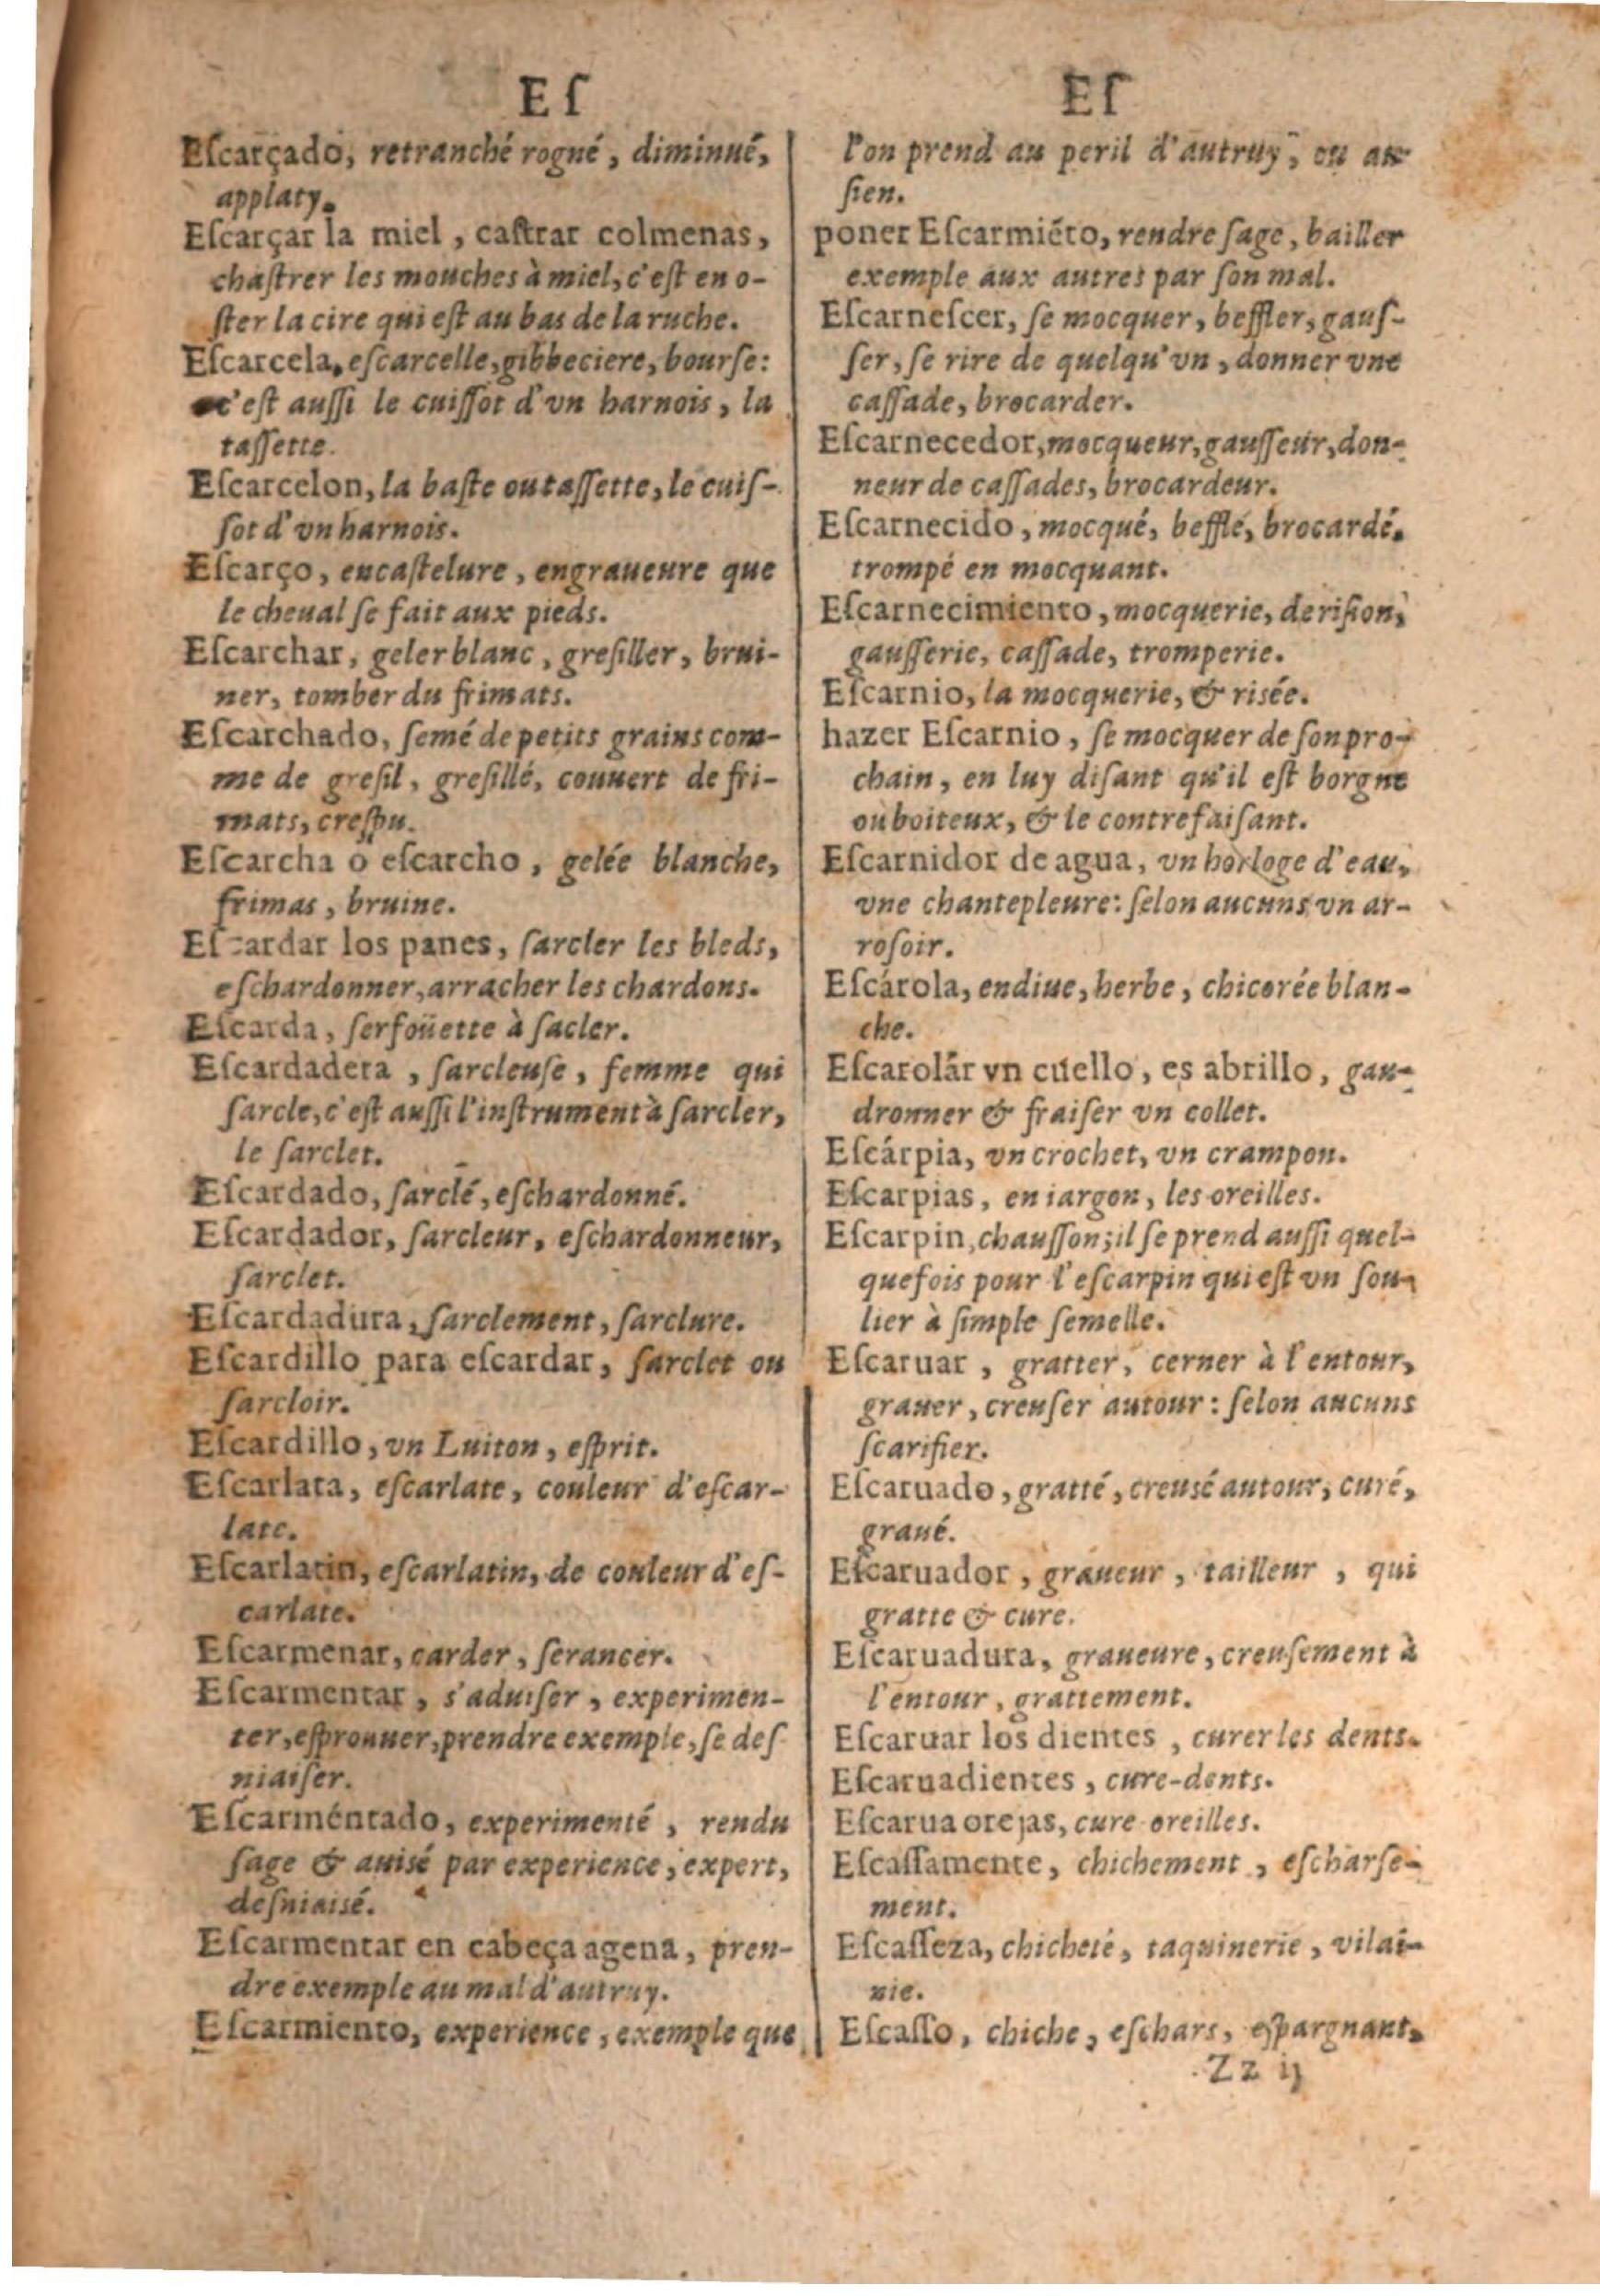 Eſ
Eſcarçado, retranché rogné, diminué,
applaty.
Eſcarçar la miel, caſtrar colmenas,
chaſtrer les mouches à miel, c'eſt en o-
ſter la cire qui eſt au bas de la ruche.
Eſcarcela, eſcarcelle, gibbeciere, bourſe:
c'eſt auſſi le cuiſſot d'vn harnois, la
taſſette.
Eſcarcelon, la baſte ou taſſette, le cuiſ-
ſot d'vn harnois.
Eſcarço, encaſtelure, engraueure que
le cheual ſe fait aux pieds.
Eſcarchar, geler blanc, greſiller, brui-
ner, tomber du frimats.
Eſcarchado, ſemé de petits grains com-
me de greſil, greſillé, couuert de fri-
mats, creſpu.
Eſcarcha o eſcarcho, gelée blanche,
frimas, bruine.
Eſcardar los panes, ſarcler les bleds,
eſchardonner, arracher les chardons.
Eſcarda, ſerfoüette à ſacler.
Eſcardadera, ſarcleuſe, femme qui
ſarcle, c'eſt auſſi l'inſtrument à ſarcler,
le ſarclet.
Eſcardado, ſarclé, eſchardonné.
Eſcardador, ſarcleur, eſchardonneur,
ſarclet.
Eſcardadura, ſarclement, ſarclure.
Eſcardillo para eſcardar, ſarclet ou
ſarcloir.
Eſcardillo, vn Luiton, eſprit.
Eſcarlata, eſcarlate, couleur d'eſcar-
late.
Eſcarlatin, eſcarlatin, de couleur d'eſ-
carlate.
Eſcarmenar, carder, ſerancer.
Eſcarmentar, s'aduiſer, experimen-
ter, eſprouuer, prendre exemple, ſe deſ
niaiſer.
Eſcarméntado, experimenté, rendu
ſage & auisé par experience, expert,
deſniaisé.
Eſcarmentar en cabeça agena, pren-
dre exemple au mal d'autruy.
Eſcarmiento, experience, exemple que
Eſ
l'on prend au peril d'autruy, ou au
ſien.
poner Eſcarmiẽto, rendre ſage, bailler
exemple aux autres par ſon mal.
Eſcarneſcer, ſe mocquer, beffler, gauſ-
ſer, ſe rire de quelqu'vn, donner vne
caſſade, brocarder.
Eſcarnecedor, mocqueur, gauſſeur, don-
neur de caſſades, brocardeur.
Eſcarnecido, mocqué, befflé, brocardé,
trompé en mocquant.
Eſcarnecimiento, mocquerie, deriſion,
gauſſerie, caſſade, tromperie.
Eſcarnio, la mocquerie, & risée.
hazer Eſcarnio, ſe mocquer de ſon pro-
chain, en luy diſant qu'il eſt borgne
ou boiteux, & le contrefaiſant.
Eſcarnidor de agua, vn horloge d'eau,
vne chantepleure: ſelon aucuns vn ar-
roſoir.
Eſcárola, endiue, herbe, chicorée blan-
che.
Eſcarolár vn cuello, es abrillo, gau-
dronner & fraiſer vn collet.
Eſcárpia, vn crochet, vn crampon.
Eſcarpias, en iargon, les oreilles.
Eſcarpin, chauſſon; il ſe prend auſſi quel-
quefois pour l'eſcarpin qui eſt vn ſou-
lier à ſimple ſemelle.
Eſcaruar, gratter, cerner à l'entour,
grauer, creuſer autour: ſelon aucuns
ſcarifier.
Eſcaruado, gratté, creusé autour, curé,
graué.
Eſcaruador, graueur, tailleur, qui
gratte & cure.
Eſcaruadura, graueure, creuſement à
l'entour, grattement.
Eſcaruar los dientes, curer les dents.
Eſcaruadientes, cure-dents.
Eſcarua orejas, cure oreilles.
Eſcaſſamente, chichement, eſcharſe-
ment.
Eſcaſſeza, chicheté, taquinerie, vilai-
nie.
Eſcaſſo, chiche, eſchars, eſpargnant,
Zz ij